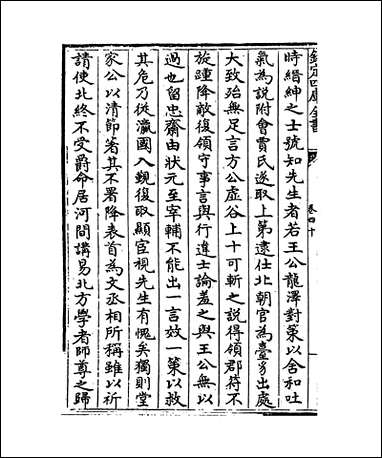 欽定四庫全書
卷四十
時縉紳之士號知先生者若王公龍澤對策以含和吐
氣為説附會賈氏遂取上第逮仕北朝官為臺察出處
大致殆無足言方公虛谷上十可斬之説得領郡符不
旋踵降敵復領守事言與行違士論羞之與王公無以
過也留忠齋由狀元至宰輔不能出一言效一策以救
其危乃從瀛國入覲後取顯官視先生有愧矣獨則堂
家公以清節著其不署降表首為文丞相所稱雖以祈
請使北終不受爵命居河間講易北方學者師尊之歸